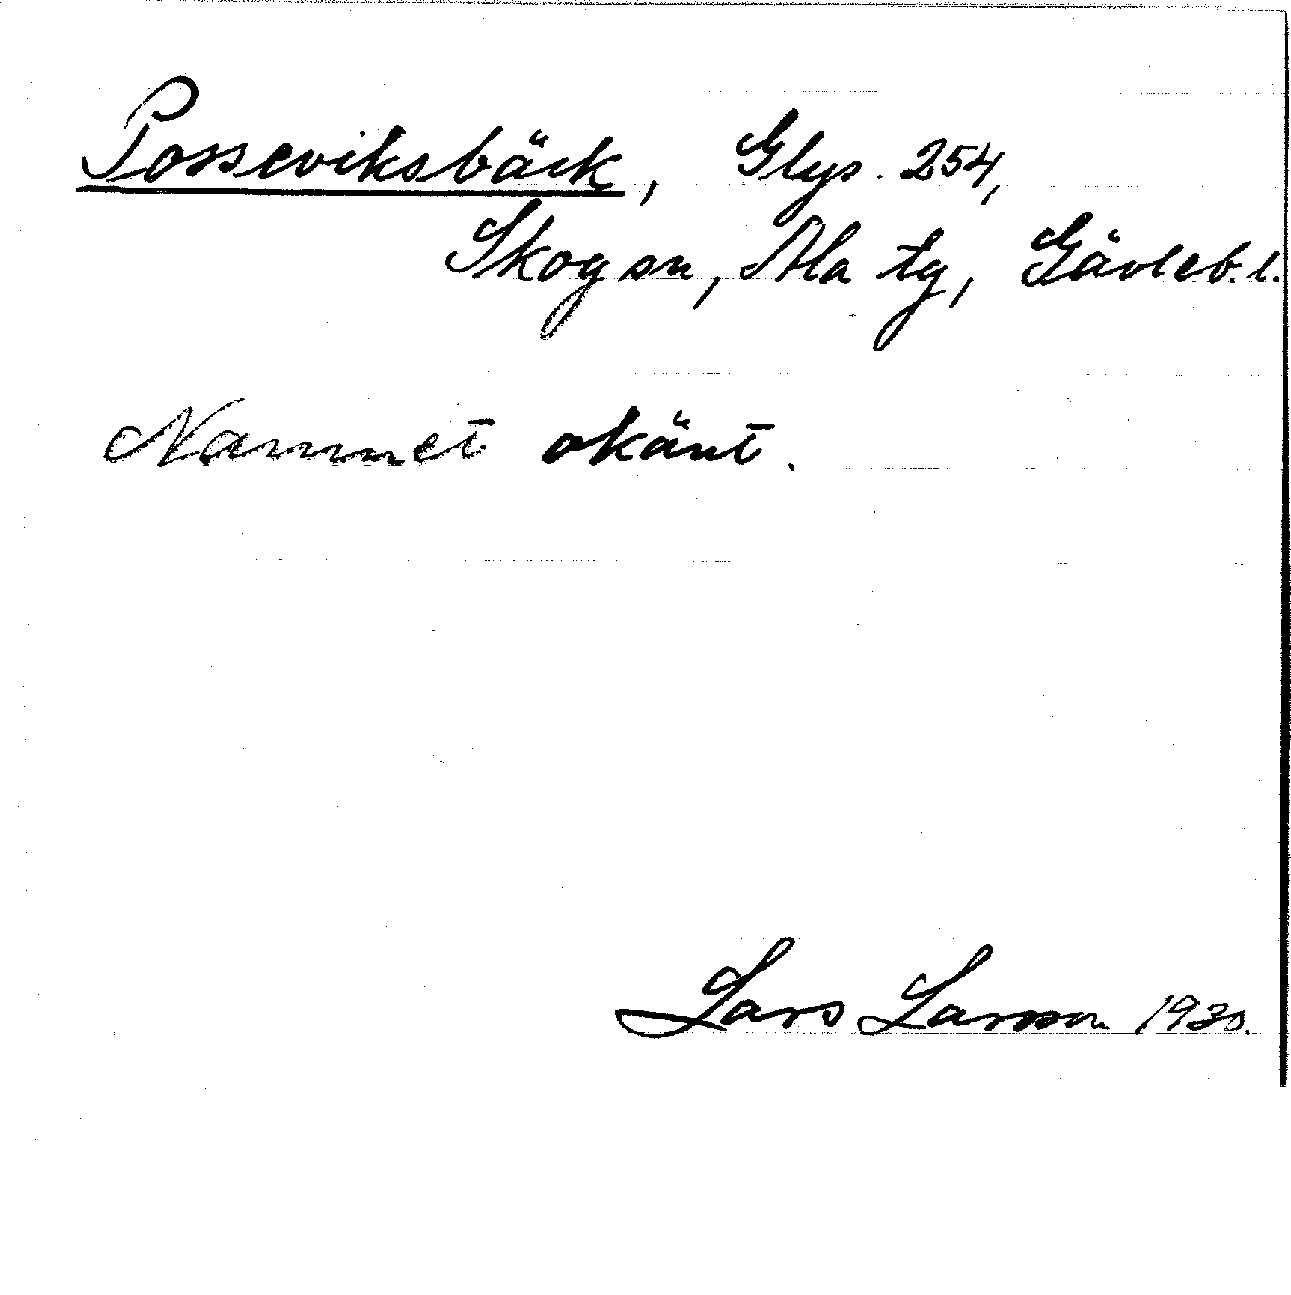 Posseviksbäck, Glys. 254,
Skog sn, Ala tg, Gävleb. l.
Namnet okänt.
Lars Larsson 1930.